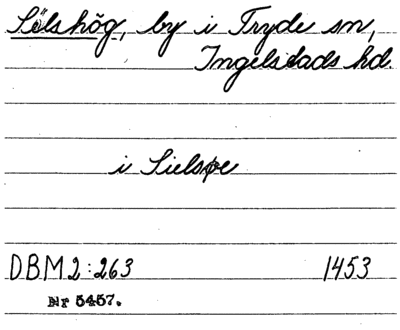 Sölshög, by i Tryde sn,
Ingelstads hd.
i Sielspe
DBM 2:263 1453
Nr 5457.